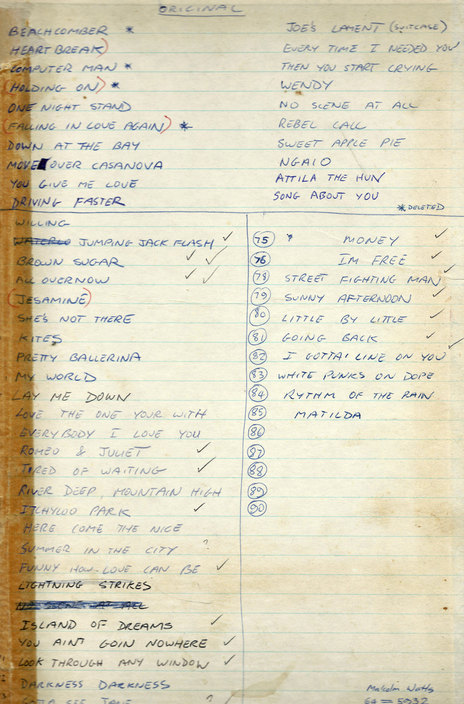 ORIGINAL
BEACHCOMBER *
HEARTBREAK)
COMPUTER MAN *
(HOLDING ON) *
ONE NIGHT STAND
(FALLING IN LOVE AGAIN) *
DOWN AT THE BAY
MOVE OVER CASANOVA
YOU GIVE ME LOVE
DRIVING FASTER
JOE'S LAMENT (SUITCASE)
EVERY TIME I NEEDED YOU
THEN YOU START CRYING
WENDY
NO SCENE AT ALL
REBEL CALL
SWEET APPLE PIE
NGAIO
ATTILA THE HUN
SONG ABOUT YOU
* DELETED
WILLING
WATERLO JUMPING JACK FLASH ✓
BROWN SUGAR ✓ ✓
ALL OVER NOW ✓ ✓
(JESAMINE)
SHE'S NOT THERE
KITES
PRETTY BALLERINA
MY WORLD
LAY ME DOWN
LOVE THE ONE YOUR WITH
EVERYBODY I LOVE YOU
ROMEO & JULIET ✓
TIRED OF WAITING ✓
RIVER DEEP, MOUNTAIN HIGH
ITCHYCOO PARK ✓
HERE COME THE NICE
SUMMER IN THE CITY ?
FUNNY HOW LOVE CAN BE ✓
LIGHTNING STRIKES
NO SCENE AT ALL
ISLAND OF DREAMS ✓
YOU AIN'T GOIN NOWHERE ✓
LOOK THROUGH ANY WINDOW ✓
DARKNESS DARKNESS
SEE JANE ?
75 ? MONEY ✓
76 I'M FREE ✓
78 STREET FIGHTING MAN ✓
79 SUNNY AFTERNOON ✓
80 LITTLE BY LITTLE ✓
81 GOING BACK ✓
82 I GOTTA' LINE ON YOU ✓
83 WHITE PUNKS ON DOPE
84 RYTHM OF THE RAIN
85 MATILDA
86
87
88
89
90
Malcolm Watts